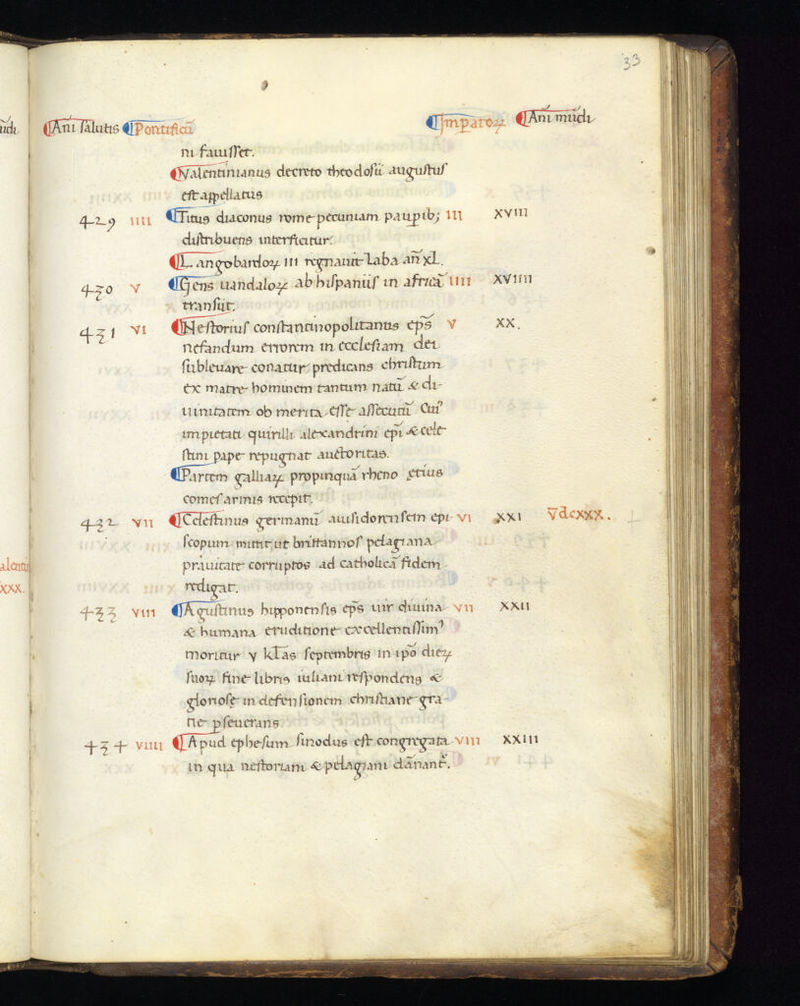 33
Ani salutis Pontificū Imperatoꝝ Ani mūdi
ni fauisset.
Valentinianus decreto theodosii augustus
est appellatus
429 iiii Titus diaconus rome pecuniam pauꝑib; iii xviii
distribuens interficitur.
Langobardoꝝ iii regnauit Laba an̄ xl.
430 v Gens uandaloꝝ ab hispaniis in africā iiii xviiii
transiit.
431 vi Nestorius constantinopolitanus ep̄s v xx.
nefandum errorem in ecclesiam dei
subleuare conatur predicans christum
ex matre hominem tantum natū & di-
uinitatem ob merita esse assecutū Cui'
impietati quirilli alexandrini ep̄i & cele
stini pape repugnat auctoritas.
Partem galliaꝝ propinquā rheno etius
comes armis recepit.
432 vii Celestinus germanū auisidorensem epi vi xxi Vdcxxx.
scopum mittit ut brittannos pelagiana
prauitate corruptos ad catholicā fidem
redigat.
433 viii Agustinus hipponensis ep̄s uir diuina vii xxii
& humana eruditione excellentissim'
moritur v kl̄as septembris in ip̄o dieꝝ
suoꝝ fine libris iuliani respondens &
gloriose in defensionem christiane gra
tie ꝑseuerans
434 viiii Apud ephesum sinodus est congregata viii xxiii
in qua nestoriani & pelagiani dānant̄.
xxx.